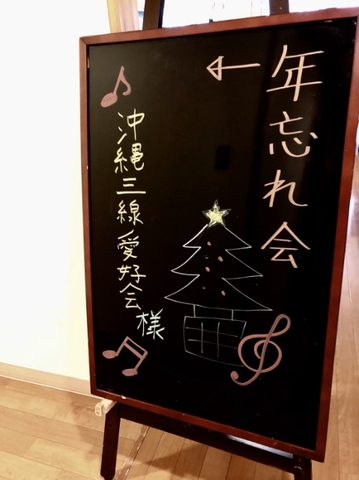 年忘れ会
沖縄三線愛好会様